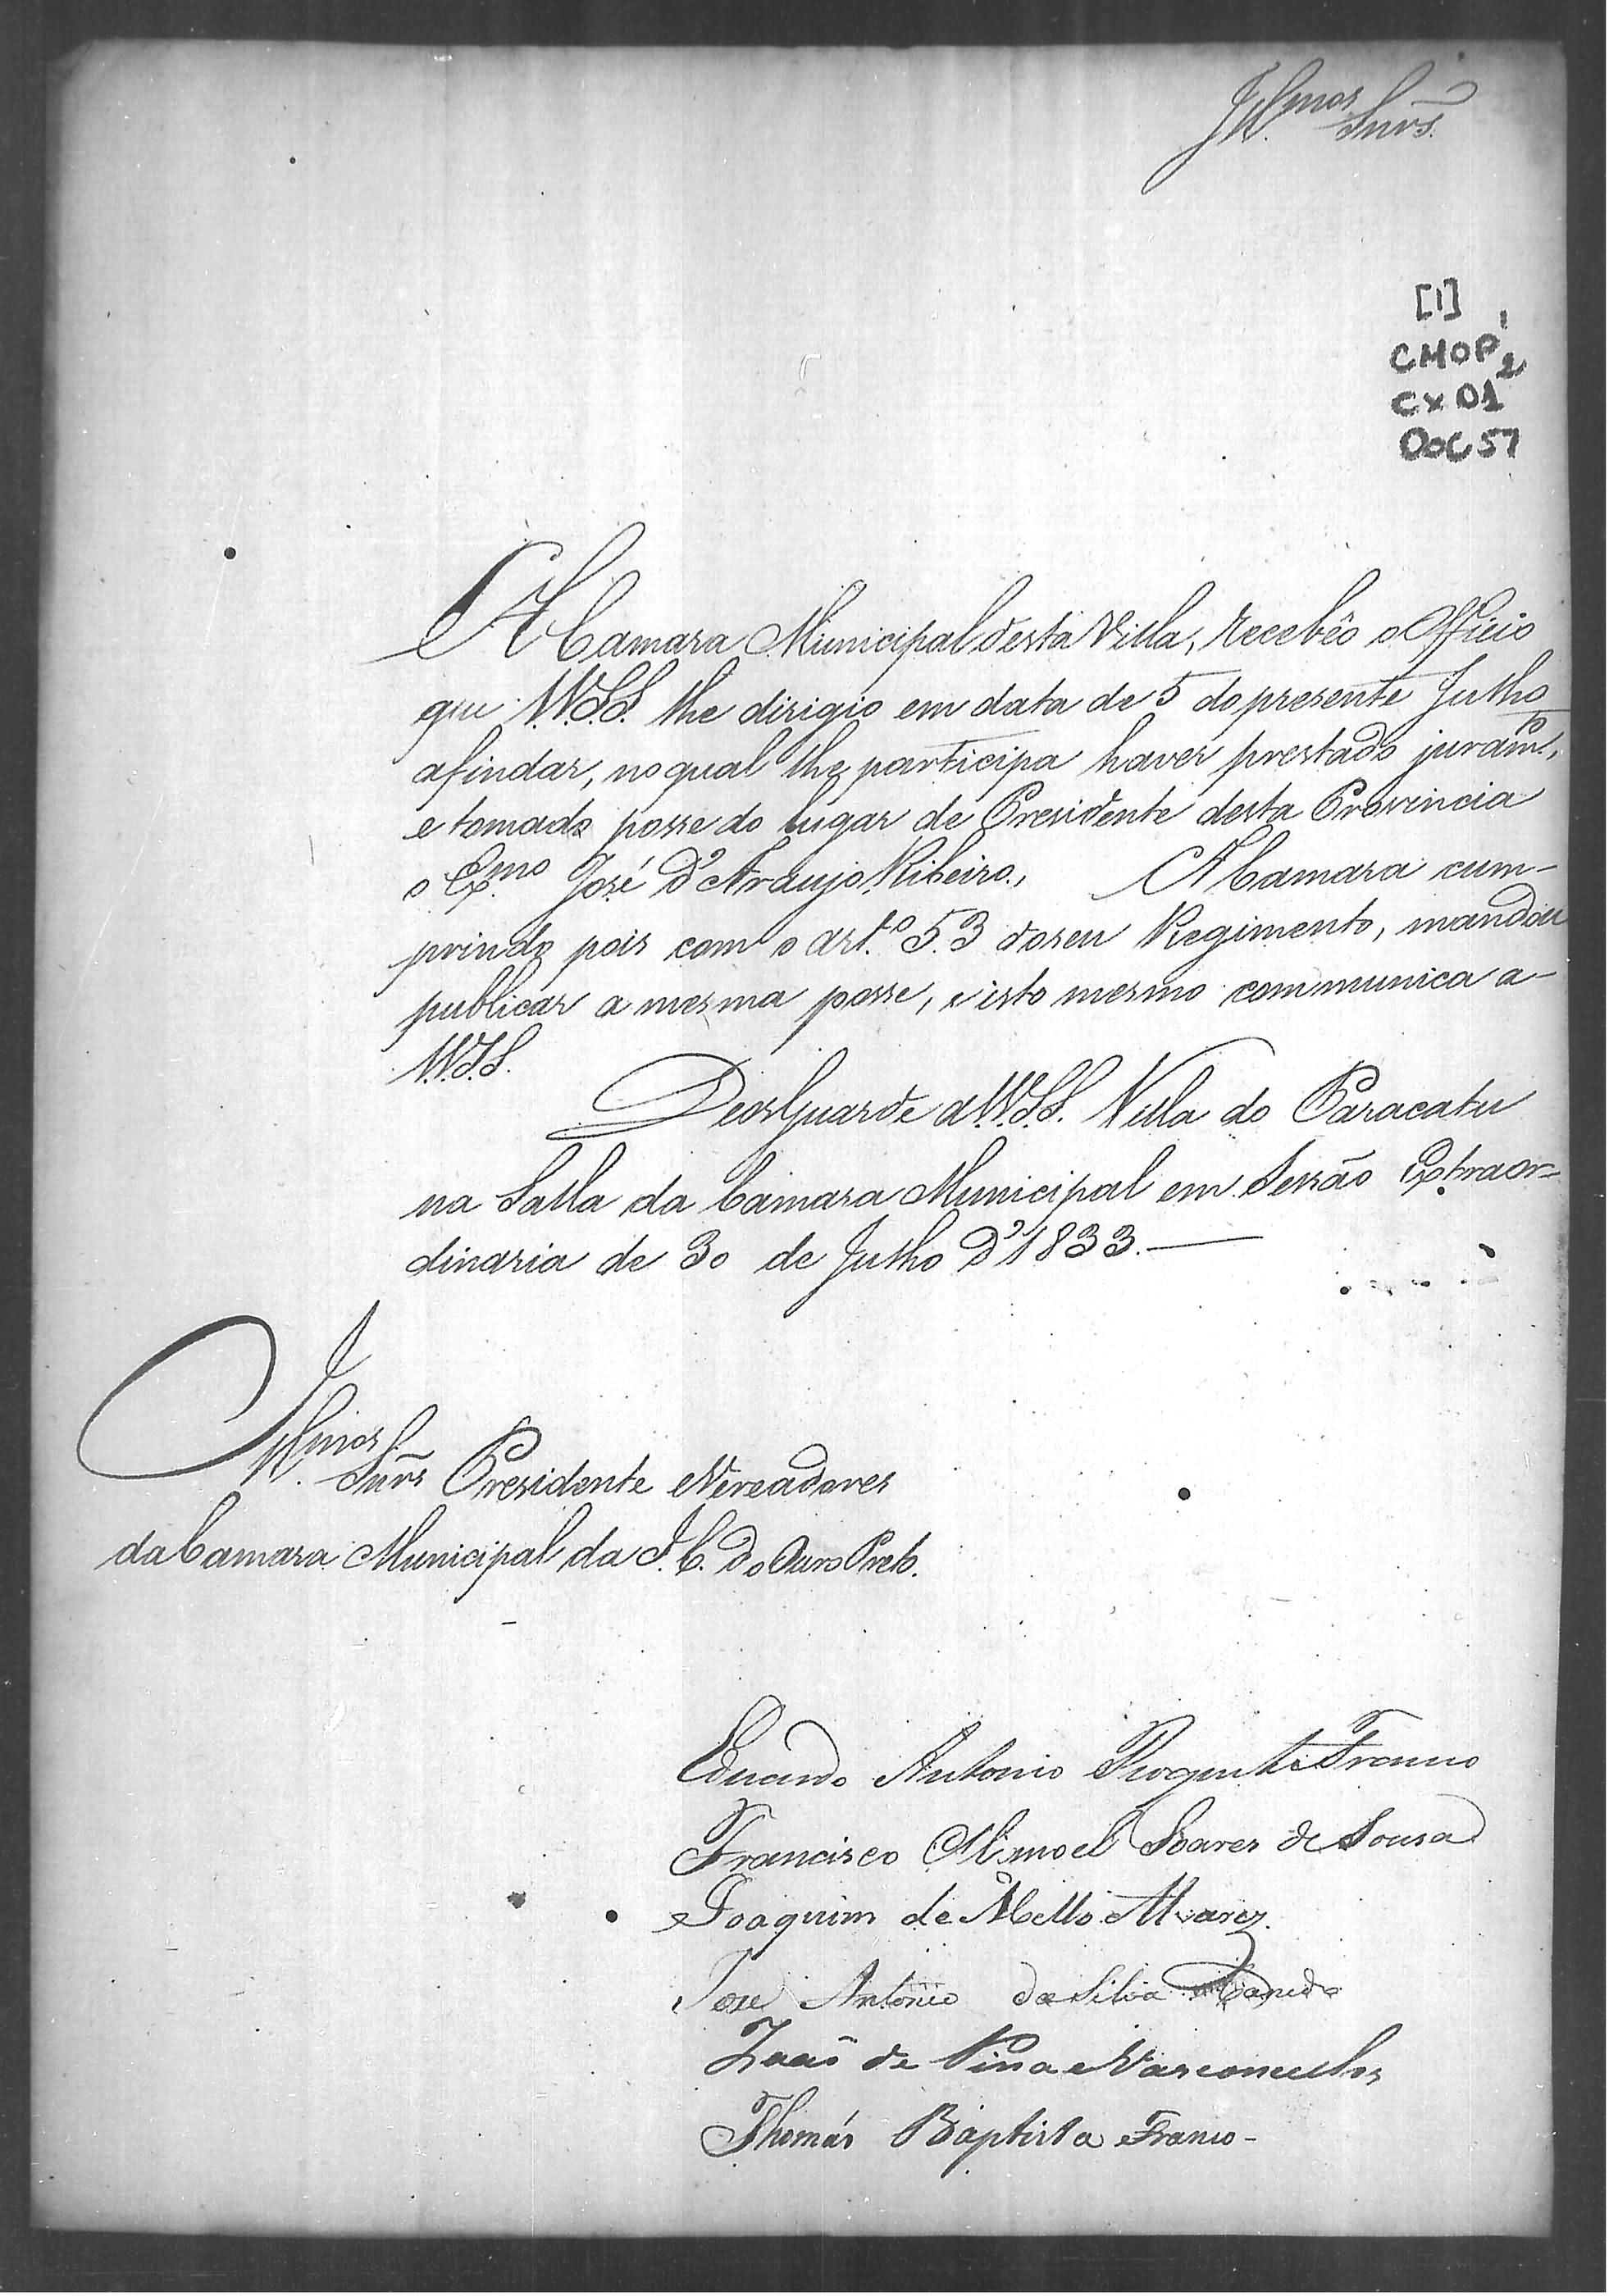 Illmos Snrs.
[1]
CMOP 1
2
CX 01
DOC 57
A Camara Municipal desta Villa, recebêo o Officio
que V.V.S.S. lhe dirigio em data de 5 do presente Julho
afindar, no qual lhe participa haver prestado juramto.,
e tomado posse do lugar de Presidente desta Provincia
o Exmo José d'Araujo Ribeiro., A Camara cum-
prindo pois com o art.o 53 do seu Regimento, mandou
publicar a mesma posse, e isto mesmo communica a
V.V.S.S.
Deos Guarde a V.V.S.S. Villa do Paracatu
na Salla da Camara Municipal em Sessão Extraor=
dinaria de 30 de Julho d'1833.
Illmos Snrs Presidente e Vereadores
da Camara Municipal da I.C. do Ouro Preto.
Eduardo Antonio Franco
Francisco Manoel Soares de Sousa
Joaquim de Mello Alvarez.
José Antonio da Silva
João de Pina e Vasconcellos
Thomás Baptista Franco-